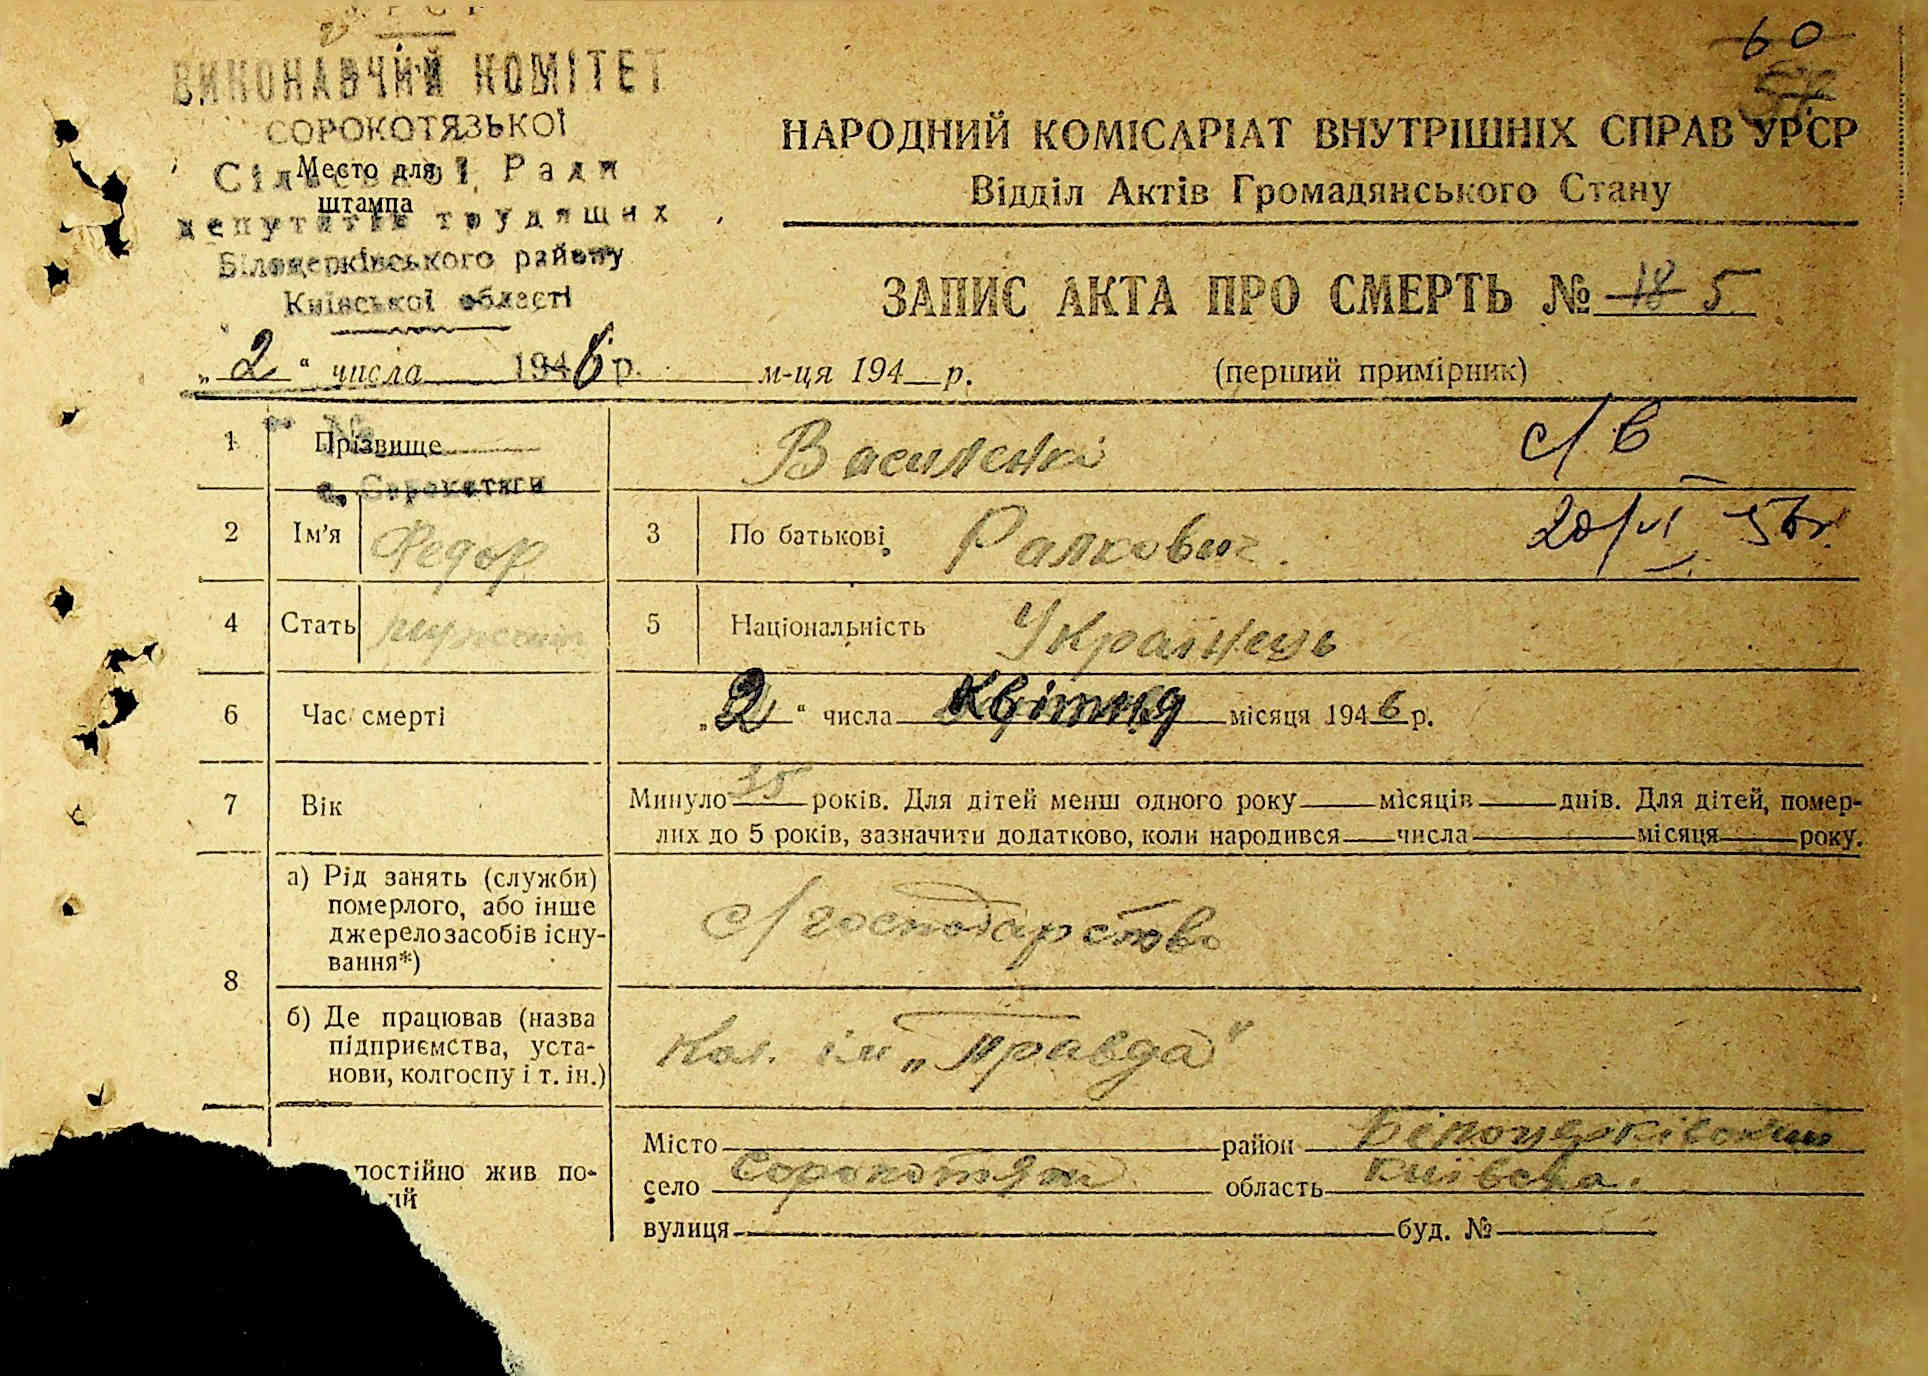 УРСР
ВИКОНАВЧИЙ КОМІТЕТ
СОРОКОТЯЗЬКОЇ
Сільської Ради
Место для
штампа
депутатів трудящих
Білоцерківського району
Київської області
60
57
НАРОДНИЙ КОМІСАРІАТ ВНУТРІШНІХ СПРАВ УРСР
Відділ Актів Громадянського Стану
ЗАПИС АКТА ПРО СМЕРТЬ № 18 5
„2“ числа 1946 р. м-ця 194 р. (перший примірник)
№
1 Прізвище Василенко с/в
с. Сорокотяги
2 Ім'я Федор 3 По батькові 20/VI 56г.
4 Стать мужский 5 Національність Українець
6 Час смерті „2“ числа Квітня місяця 1946 р.
7 Вік Минуло 35 років. Для дітей менш одного року місяців днів. Для дітей, помер-
лих до 5 років, зазначити додатково, коли народився числа місяця року.
8 а) Рід занять (служби)
померлого, або інше
джерело засобів існу-
вання*)
с/господарство
б) Де працював (назва
підприємства, уста-
нови, колгоспу і т. ін.)
Кол. ім „Правда“
постійно жив по-
ий
Місто район Білоцерківський
село Сорокотяги область Київська.
вулиця буд. №